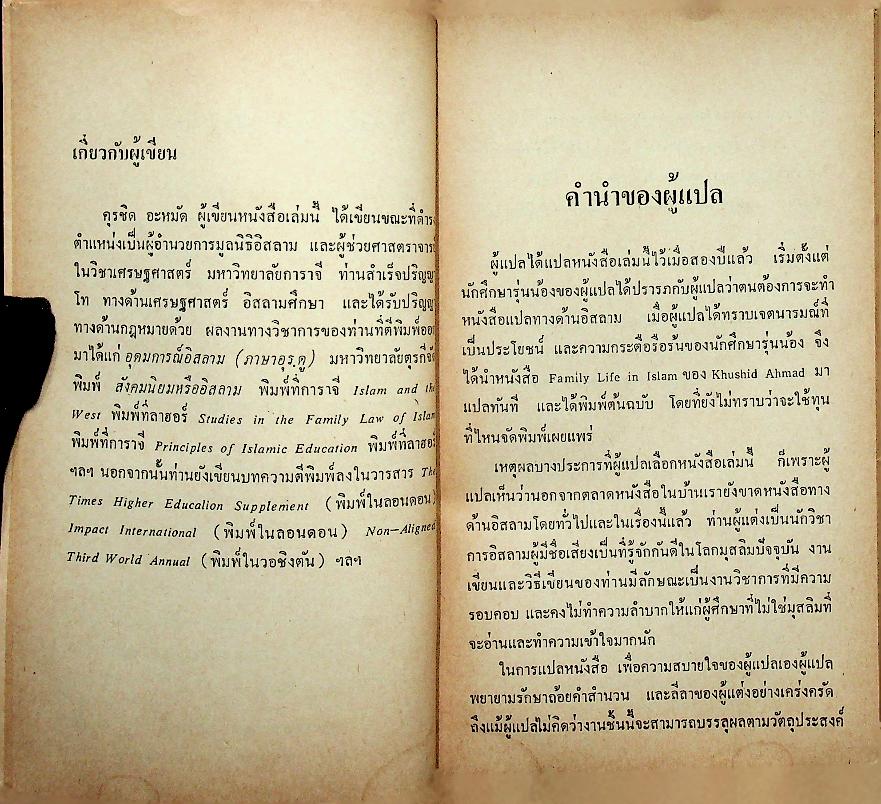 เกี่ยวกับผู้เขียน
คุรชิด อะหมัด ผู้เขียนหนังสือเล่มนี้ ได้เขียนขณะที่ดำรง
ตำแหน่งเป็นผู้อำนวยการมูลนิธิอิสลาม และผู้ช่วยศาสตราจารย์
ในวิชาเศรษฐศาสตร์ มหาวิทยาลัยการาจี ท่านสำเร็จปริญญา
โท ทางด้านเศรษฐศาสตร์ อิสลามศึกษา และได้รับปริญญา
ทางด้านกฎหมายด้วย ผลงานทางวิชาการของท่านที่ตีพิมพ์ออก
มาได้แก่ อุดมการณ์อิสลาม (ภาษาอุรฺดู) มหาวิทยาลัยตุรกีจัด
พิมพ์ สังคมนิยมหรืออิสลาม พิมพ์ที่การาจี Islam and the
West พิมพ์ที่ลาฮอร์ Studies in the Family Law of Islam
พิมพ์ที่การาจี Principles of Islamic Education พิมพ์ที่ลาฮอร์
ฯลฯ นอกจากนั้นท่านยังเขียนบทความตีพิมพ์ลงในวารสาร The
Times Higher Educalion Supplement (พิมพ์ในลอนดอน)
Impact International (พิมพ์ในลอนดอน) Non—Aligned
Third World Annual (พิมพ์ในวอชิงตัน) ฯลฯ
คำนำของผู้แปล
ผู้แปลได้แปลหนังสือเล่มนี้ไว้เมื่อสองปีแล้ว เริ่มตั้งแต่
นักศึกษารุ่นน้องของผู้แปลได้ปรารภกับผู้แปลว่าตนต้องการจะทำ
หนังสือแปลทางด้านอิสลาม เมื่อผู้แปลได้ทราบเจตนารมณ์ที่
เป็นประโยชน์ และความกระตือรือร้นของนักศึกษารุ่นน้อง จึง
ได้นำหนังสือ Family Life in Islam ของ Khushid Ahmad มา
แปลทันที และได้พิมพ์ต้นฉบับ โดยที่ยังไม่ทราบว่าจะใช้ทุน
ที่ไหนจัดพิมพ์เผยแพร่
เหตุผลบางประการที่ผู้แปลเลือกหนังสือเล่มนี้ ก็เพราะผู้
แปลเห็นว่านอกจากตลาดหนังสือในบ้านเรายังขาดหนังสือทาง
ด้านอิสลามโดยทั่วไปและในเรื่องนี้แล้ว ท่านผู้แต่งเป็นนักวิชา
การอิสลามผู้มีชื่อเสียงเป็นที่รู้จักกันดีในโลกมุสลิมปัจจุบัน งาน
เขียนและวิธีเขียนของท่านมีลักษณะเป็นงานวิชาการที่มีความ
รอบคอบ และคงไม่ทำความลำบากให้แก่ผู้ศึกษาที่ไม่ใช่มุสลิมที่
จะอ่านและทำความเข้าใจมากนัก
ในการแปลหนังสือ เพื่อความสบายใจของผู้แปลเองผู้แปล
พยายามรักษาถ้อยคำสำนวน และลีลาของผู้แต่งอย่างเคร่งครัด
ถึงแม้ผู้แปลไม่คิดว่างานชิ้นนี้จะสามารถบรรลุผลตามวัตถุประสงค์